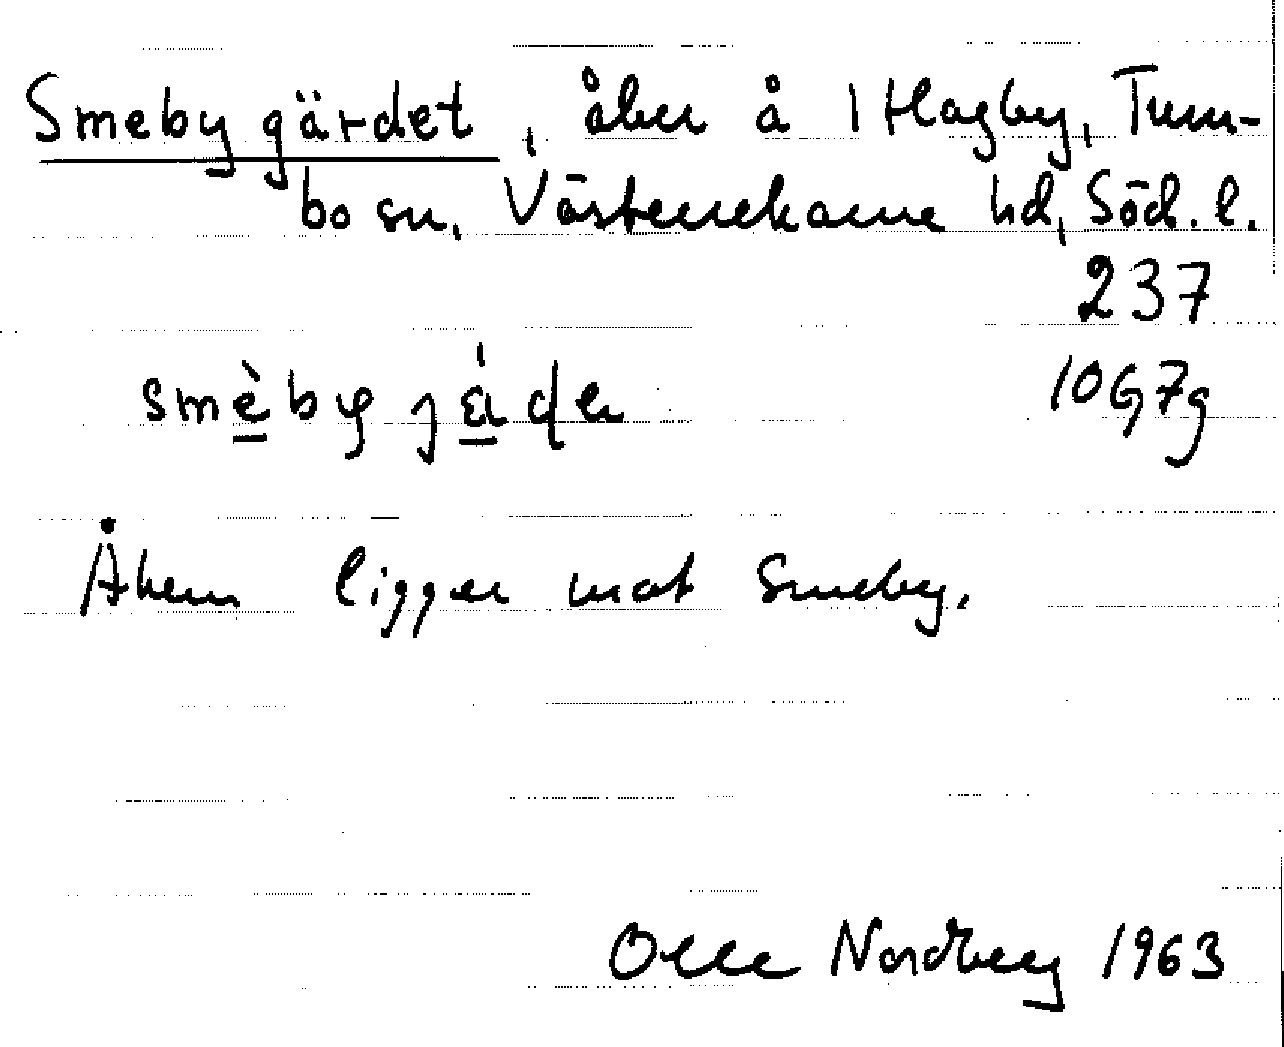 Smebygärdet, åker å 1 Hagby, Tum-
bo sn, Västerrekarne hd, Söd. l.
237
10G7g
Åkern ligger mot Smeby.
Olle Nordberg 1963